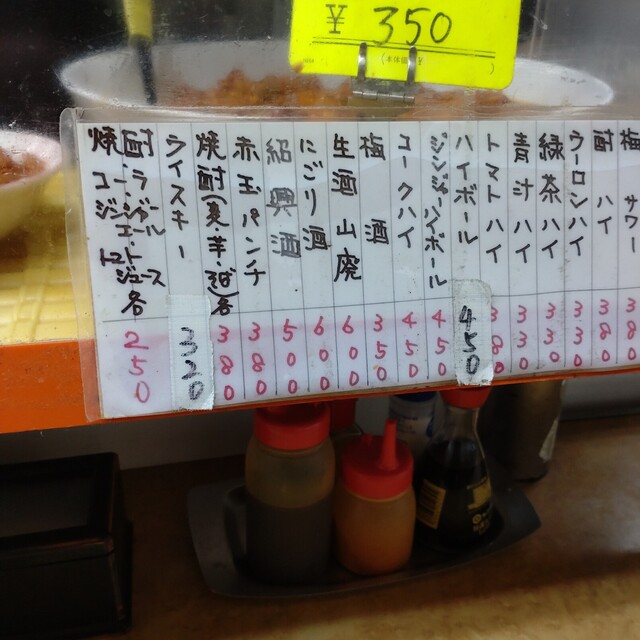 ¥350
梅サワー 38
酎ハイ 380
ウーロンハイ 380
緑茶ハイ 330
青汁ハイ 330
トマトハイ 380
ハイボール 450
ジンジャーハイボール 450
コークハイ 450
梅酒 350
生酒 山廃 600
にごり酒 600
紹興酒 500
赤玉パンチ 380
焼酎(麦・芋・)各 380
ウイスキー 320
焼酎 コーラ ジンジャーエール トマトジュース 各 250